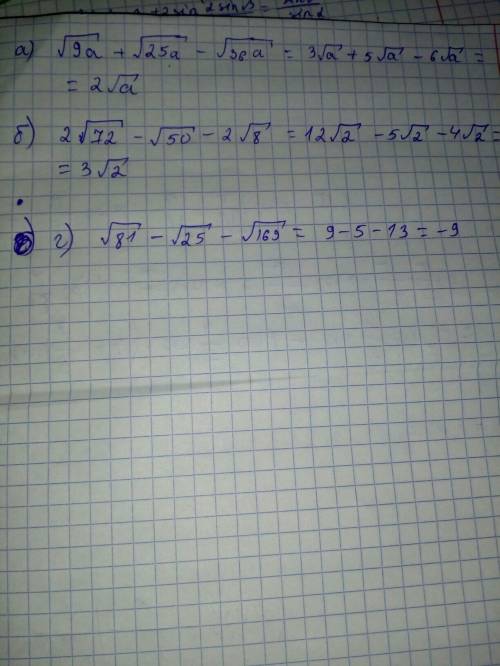 а) √9a + √25a - √36a = 3√a + 5√a - 6√a =
= 2√a
б) 2√72 - √50 - 2√8 = 12√2 - 5√2 - 4√2 =
= 3√2
г) √81 - √25 - √169 = 9 - 5 - 13 = -9